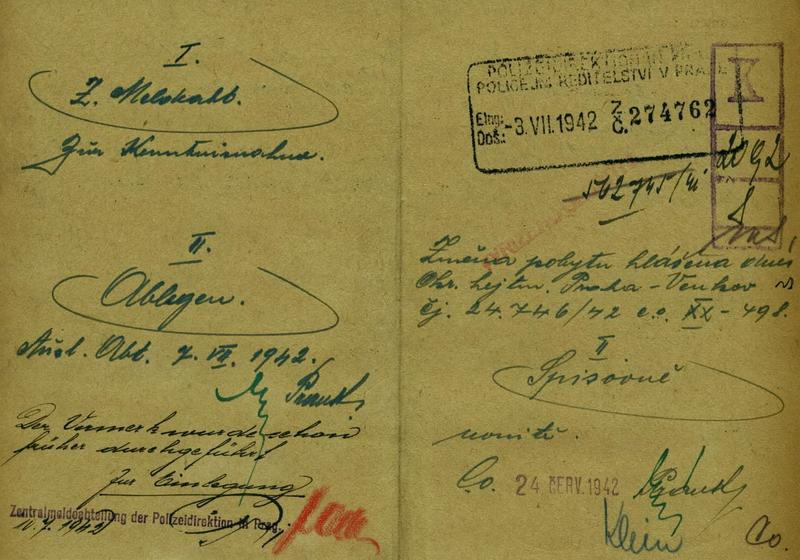 I.
Z. Meldeabt.
Zur Kenntnisnahme.
II.
Ablegen.
Ausl. Abt. 7. VII. 1942.
Der Vermerk wurde schon
früher durchgeführt
Zur Einlegung
Zentralmeldeabteilung der Polizeidirektion in Prag.
10.7.1942
POLIZEIDIREKTION IN
POLICEJNÍ ŘEDITELSTVÍ V PRAZE
Eing:
Doš.:
-3.VII.1942
Z
Č. 274762
K
S
Změna pobytu hlášena dnes
Okr. hejtm. Praha - Venkov
čj. 24.746/42 e.o. XX - 498.
II
Spisovně
Co. 24 ČERV. 1942
Klein
Co.